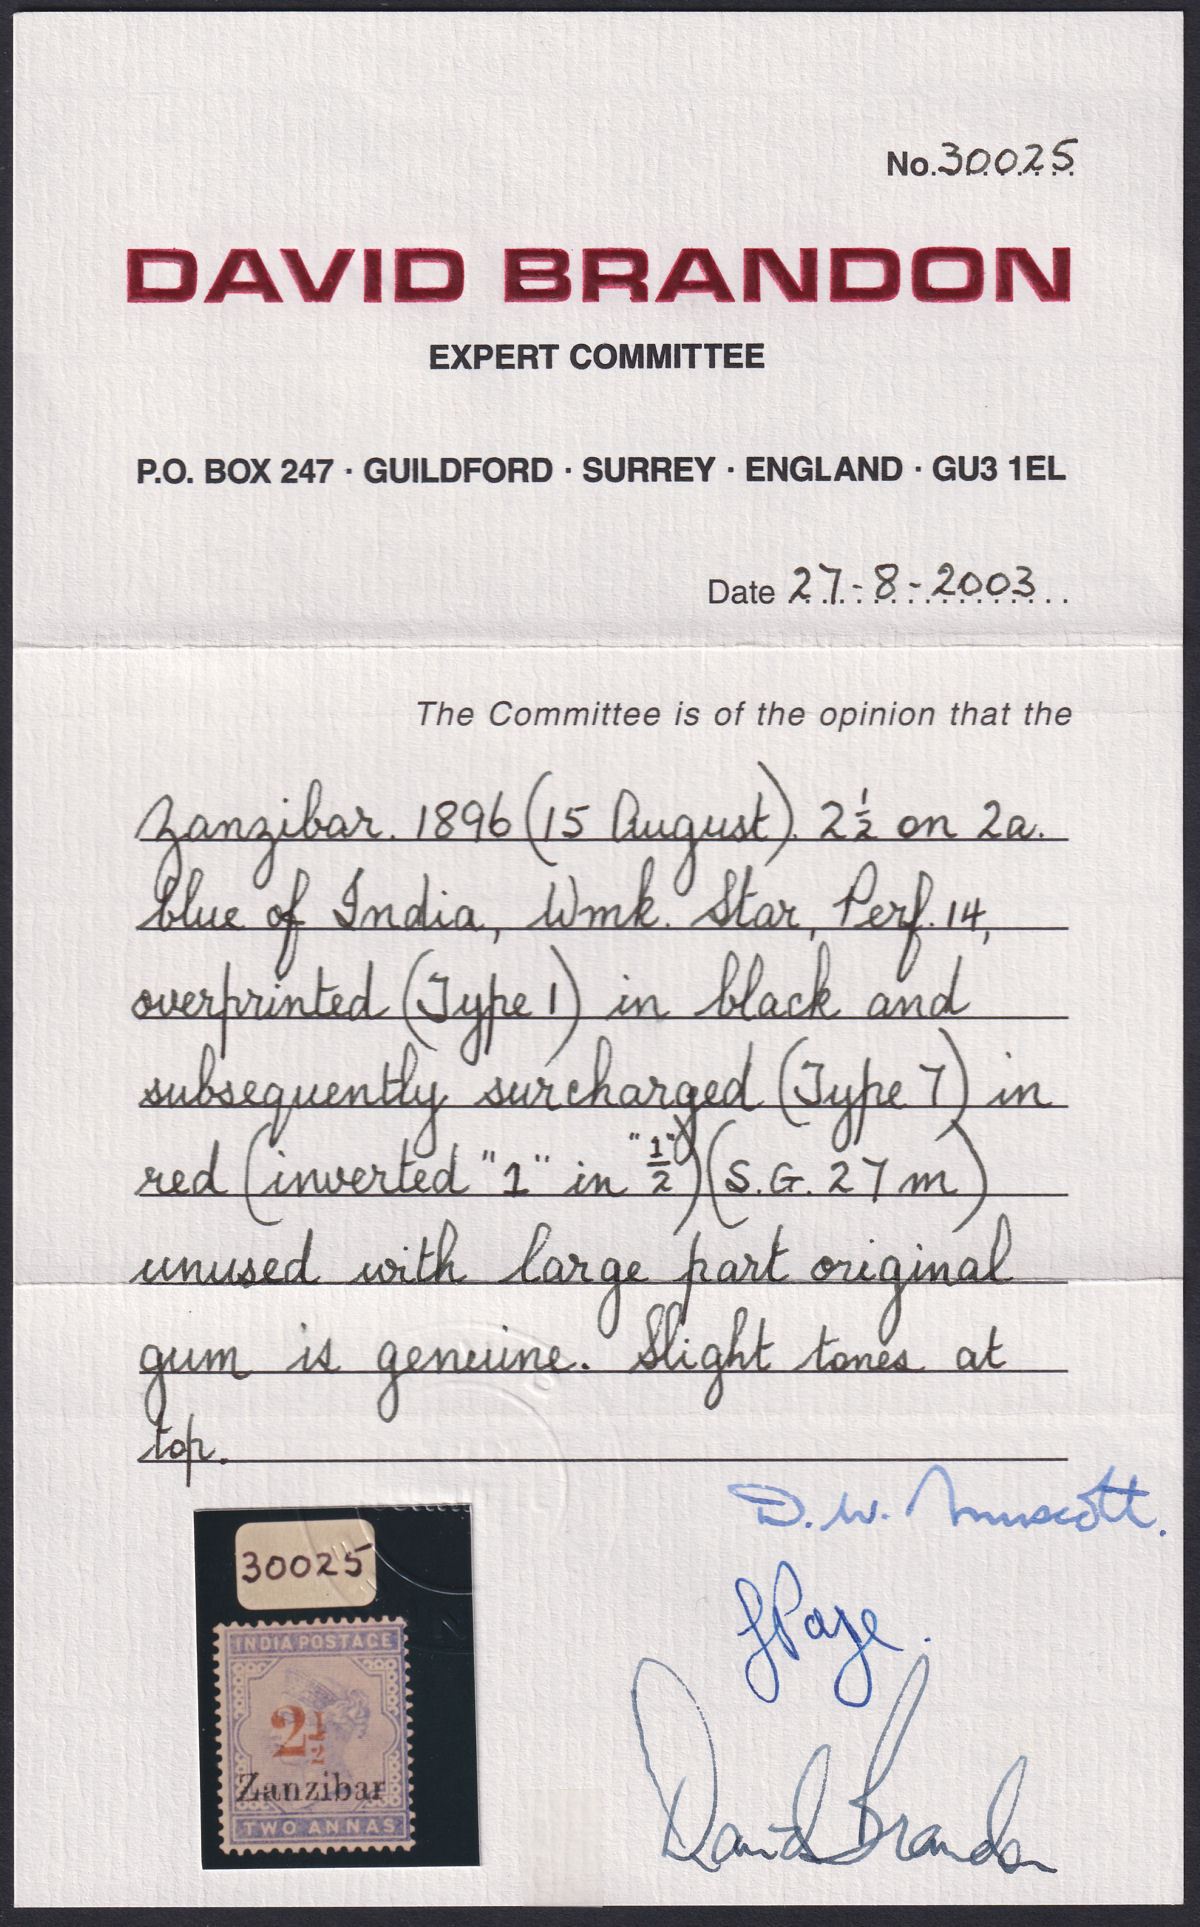 No. 30025
DAVID BRANDON
EXPERT COMMITTEE
P.O. BOX 247 · GUILDFORD · SURREY · ENGLAND · GU3 1EL
Date 27-8-2003
The Committee is of the opinion that the
Zanzibar. 1896 (15 August). 2½ on 2a.
blue of India, Wmk. Star, Perf. 14,
overprinted (Type 1) in black and
subsequently surcharged (Type 7) in
red (inverted "1" in "½") (S.G. 27m)
unused with large part original
gum is genuine. Slight tones at
top.
D. W. Muscott.
Page.
David Brandon
30025
INDIA POSTAGE
2½
Zanzibar
TWO ANNAS